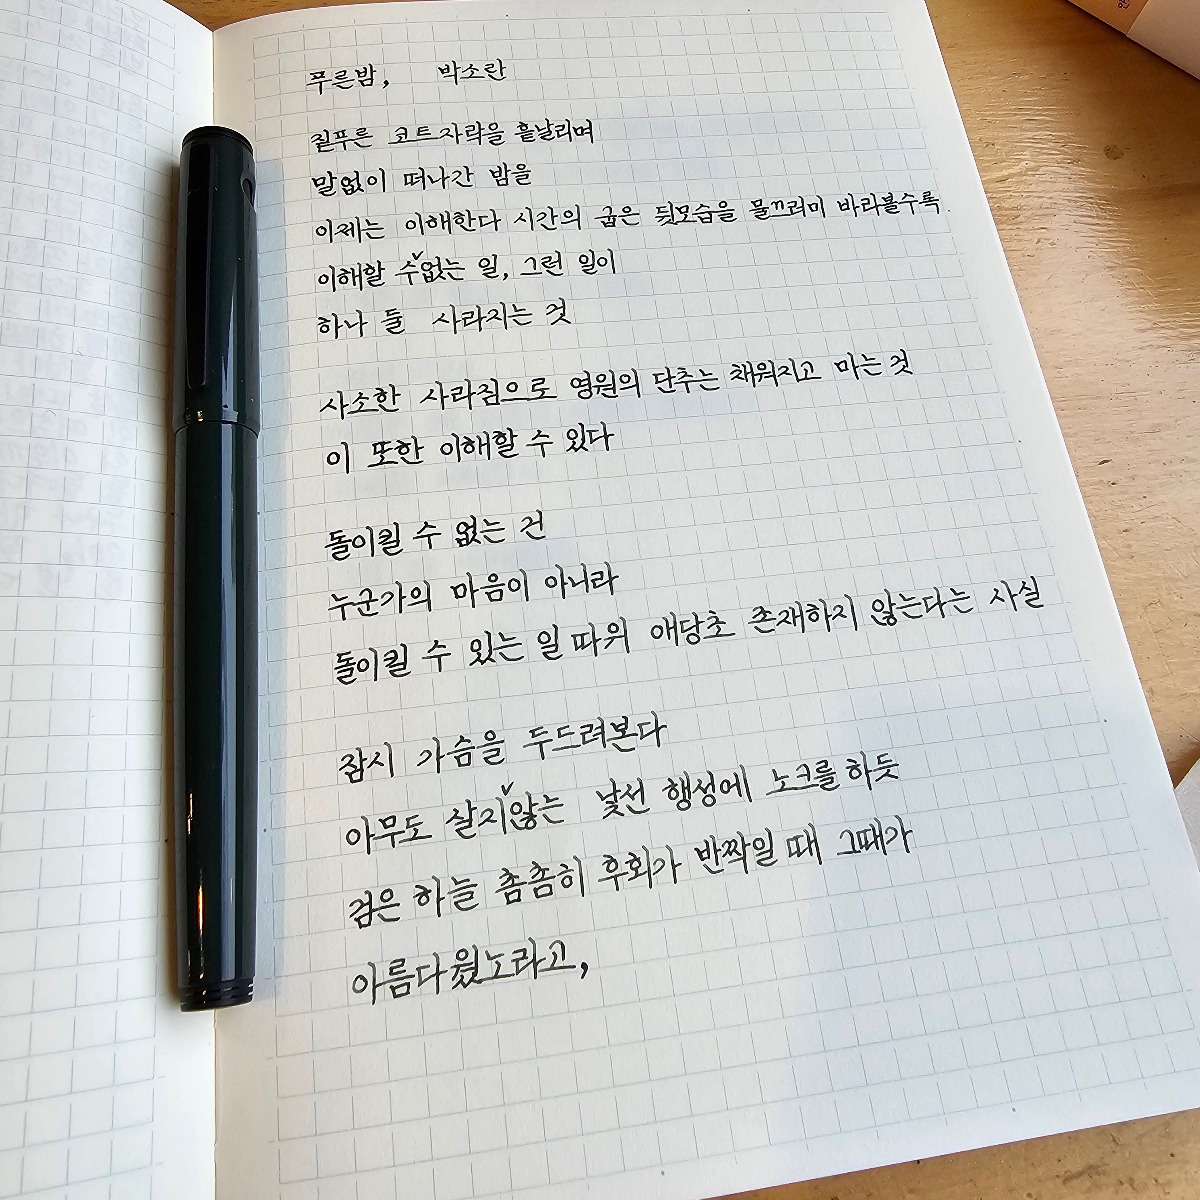 푸른밤, 박소란
짙푸른 코트자락을 흩날리며
말없이 떠나간 밤을
이제는 이해한다 시간의 굽은 뒷모습을 물끄러미 바라볼수록
이해할 수없는 일, 그런 일이
하나 둘 사라지는 것
사소한 사라짐으로 영원의 단추는 채워지고 마는 것
이 또한 이해할 수 있다
돌이킬 수 없는 건
누군가의 마음이 아니라
돌이킬 수 있는 일 따위 애당초 존재하지 않는다는 사실
잠시 가슴을 두드려본다
아무도 살지않는 낯선 행성에 노크를 하듯
검은 하늘 촘촘히 후회가 반짝일 때 그때가
아름다웠노라고,